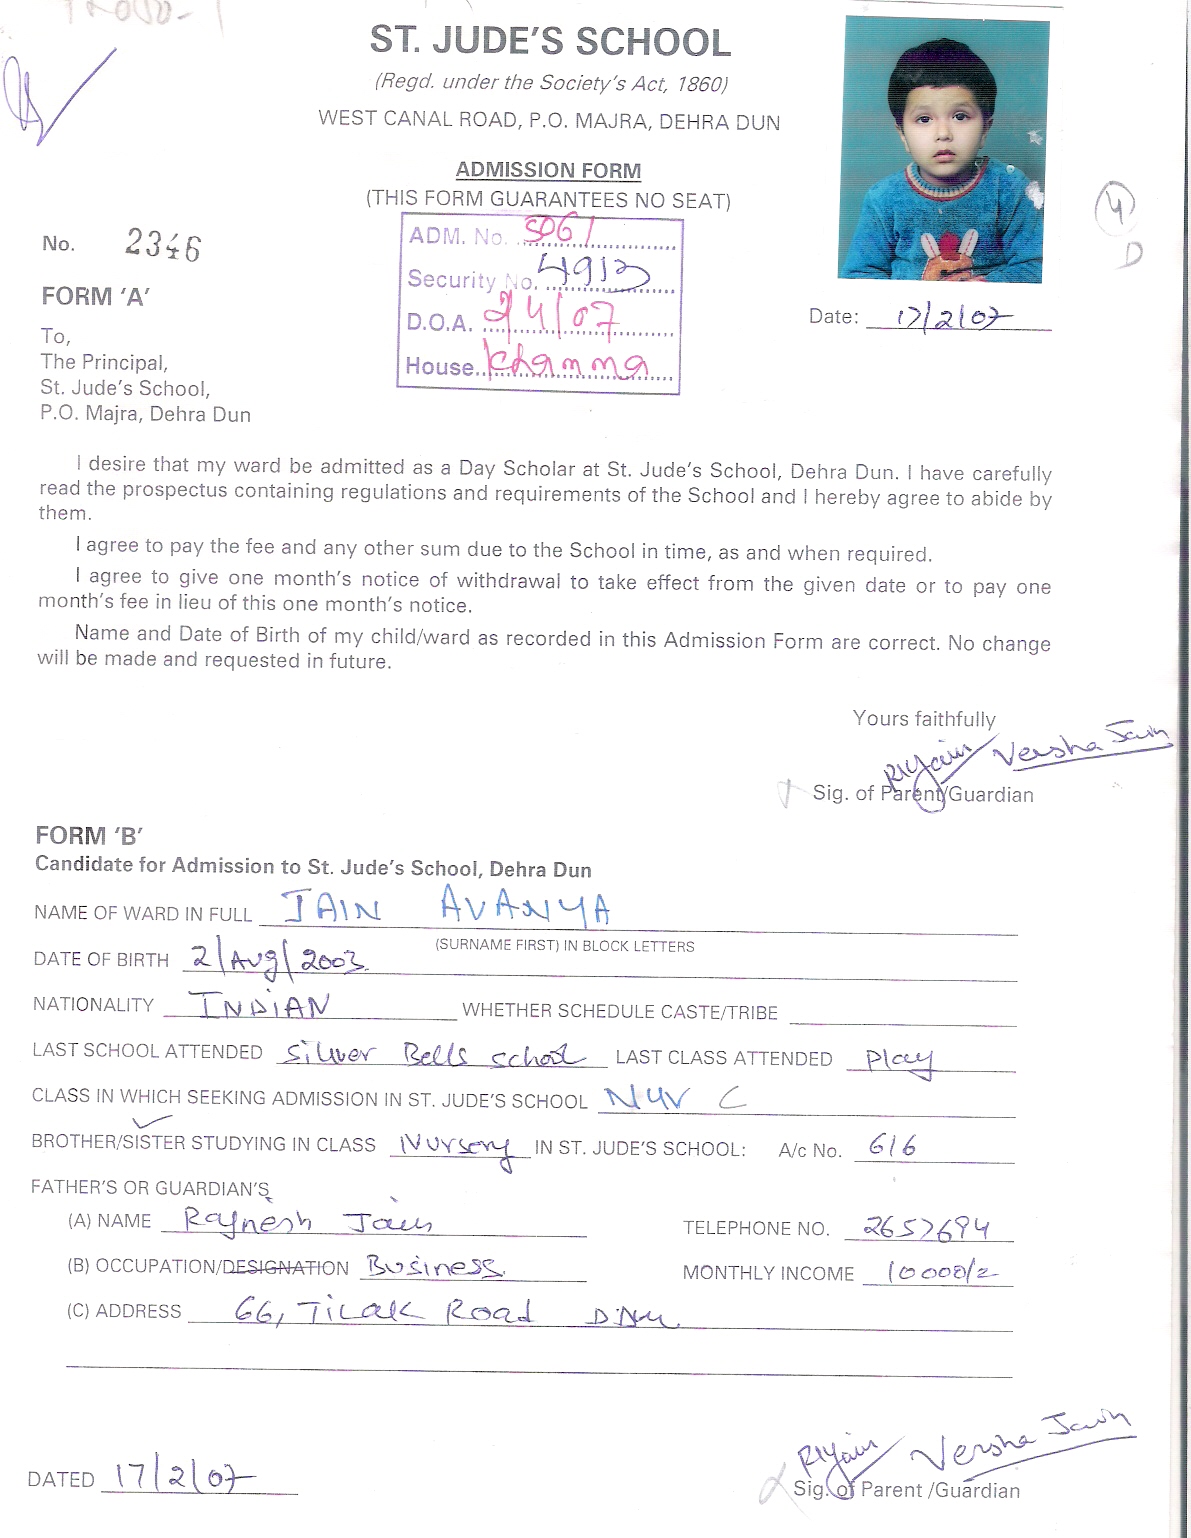 ST. JUDE'S SCHOOL
(Regd. under the Society's Act, 1860)
WEST CANAL ROAD, P.O. MAJRA, DEHRA DUN
ADMISSION FORM
(THIS FORM GUARANTEES NO SEAT)
No. 2346
ADM. No. 5061
Security No. 4913
D.O.A. 2/4/07
House. Khamma
4
D
FORM 'A'
Date: 17/2/07
To,
The Principal,
St. Jude's School,
P.O. Majra, Dehra Dun
I desire that my ward be admitted as a Day Scholar at St. Jude's School, Dehra Dun. I have carefully
read the prospectus containing regulations and requirements of the School and I hereby agree to abide by
them.
I agree to pay the fee and any other sum due to the School in time, as and when required.
I agree to give one month's notice of withdrawal to take effect from the given date or to pay one
month's fee in lieu of this one month's notice.
Name and Date of Birth of my child/ward as recorded in this Admission Form are correct. No change
will be made and requested in future.
Yours faithfully
RKJain Versha Jain
Sig. of Parent/Guardian
FORM 'B'
Candidate for Admission to St. Jude's School, Dehra Dun
NAME OF WARD IN FULL JAIN AVANYA
(SURNAME FIRST) IN BLOCK LETTERS
DATE OF BIRTH 2/Aug/2003
NATIONALITY INDIAN WHETHER SCHEDULE CASTE/TRIBE
LAST SCHOOL ATTENDED Silver Bells school LAST CLASS ATTENDED Play
CLASS IN WHICH SEEKING ADMISSION IN ST. JUDE'S SCHOOL NUR C
BROTHER/SISTER STUDYING IN CLASS Nursery IN ST. JUDE'S SCHOOL: A/c No. 616
FATHER'S OR GUARDIAN'S
(A) NAME Rajnesh Jain TELEPHONE NO. 2657694
(B) OCCUPATION/DESIGNATION Business MONTHLY INCOME 10000/=
(C) ADDRESS 66, Tilak Road D.Dun
RKJain Versha Jain
DATED 17/2/07
Sig. of Parent /Guardian